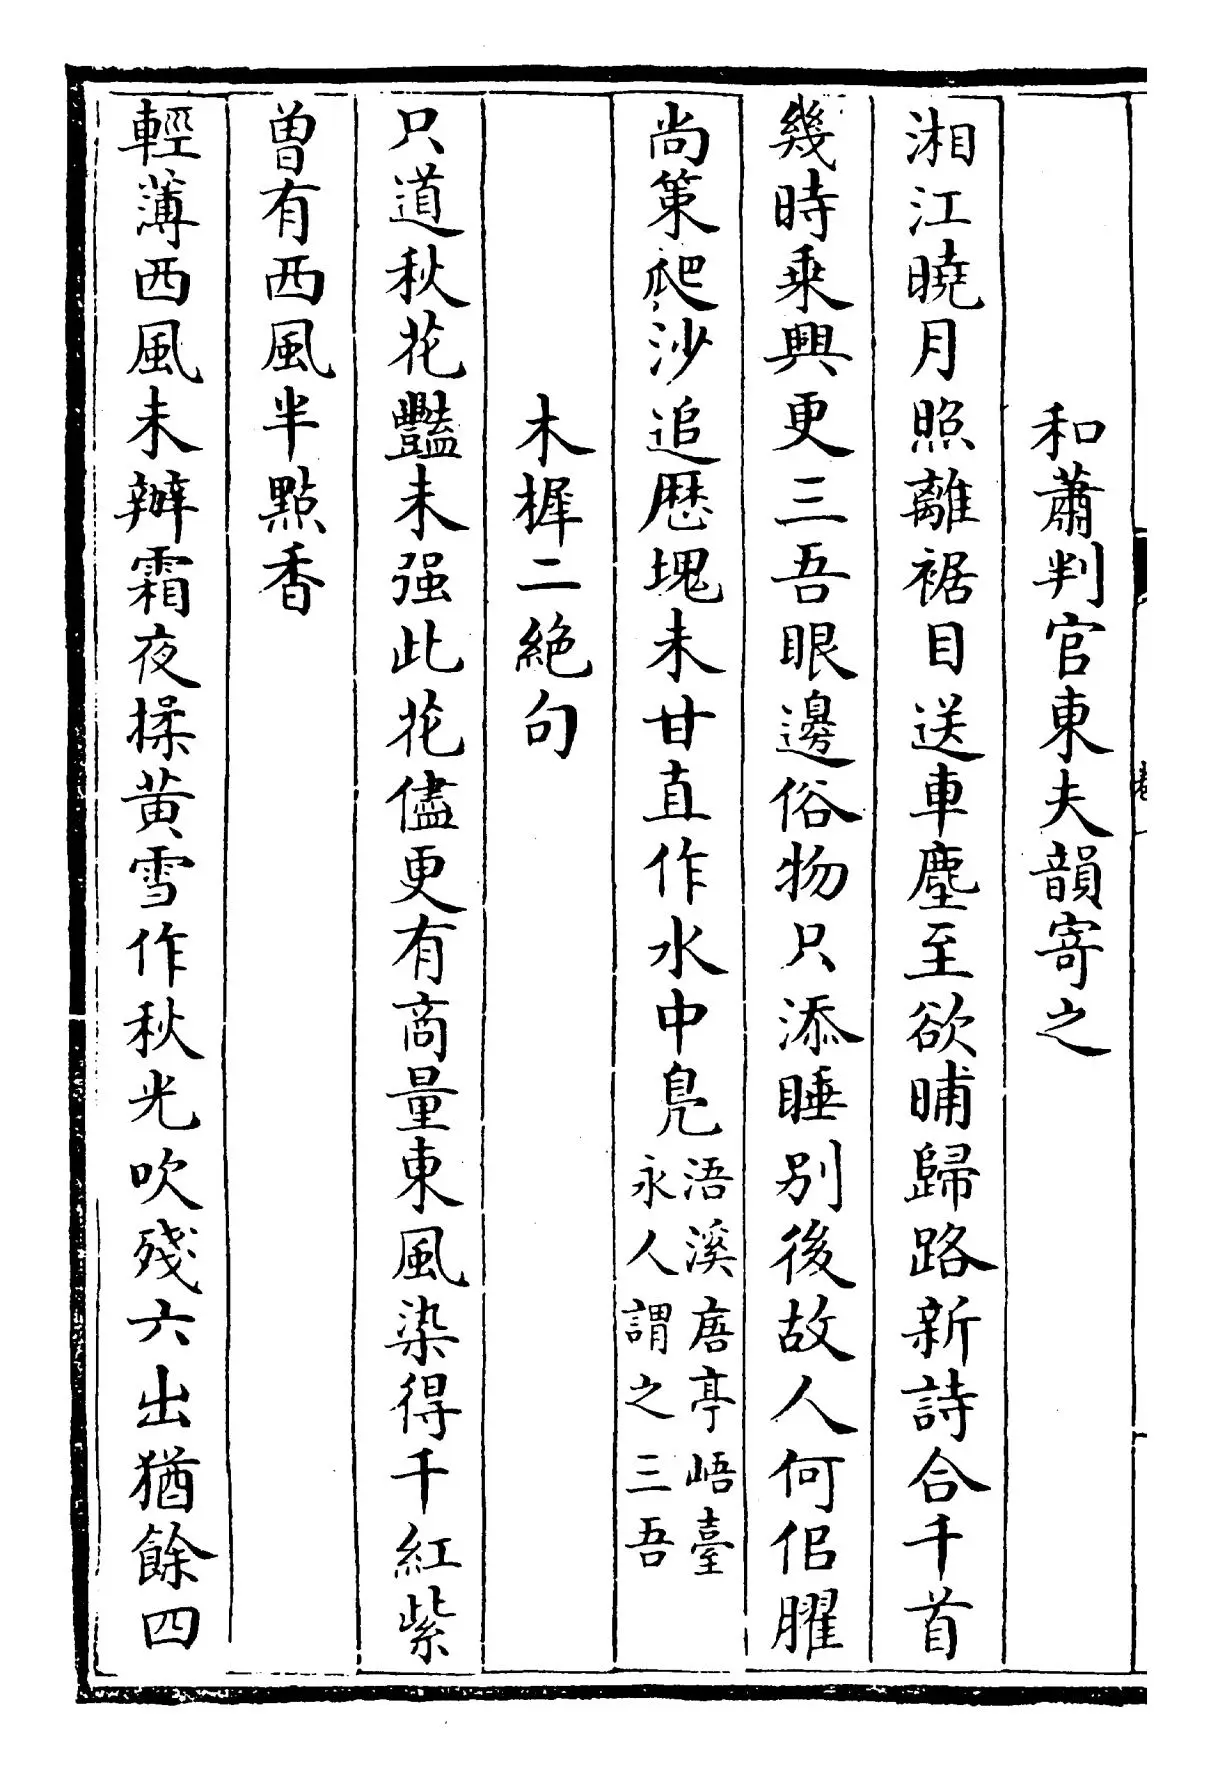 和蕭判官東夫韻寄之
湘江曉月照離裾目送車塵至欲晡歸路新詩合千首
幾時乗興更三吾眼邊俗物只添睡别後故人何侣臞
尚策爬沙追歴塊未甘直作水中鳬
浯溪㾗亭峿臺
永人謂之三吾
木樨二絶句
只道秋花豔未强此花儘更有商量東風染得千紅紫
曽有西風半點香
輕薄西風未辦霜夜揉黄雪作秋光吹殘六出猶餘四